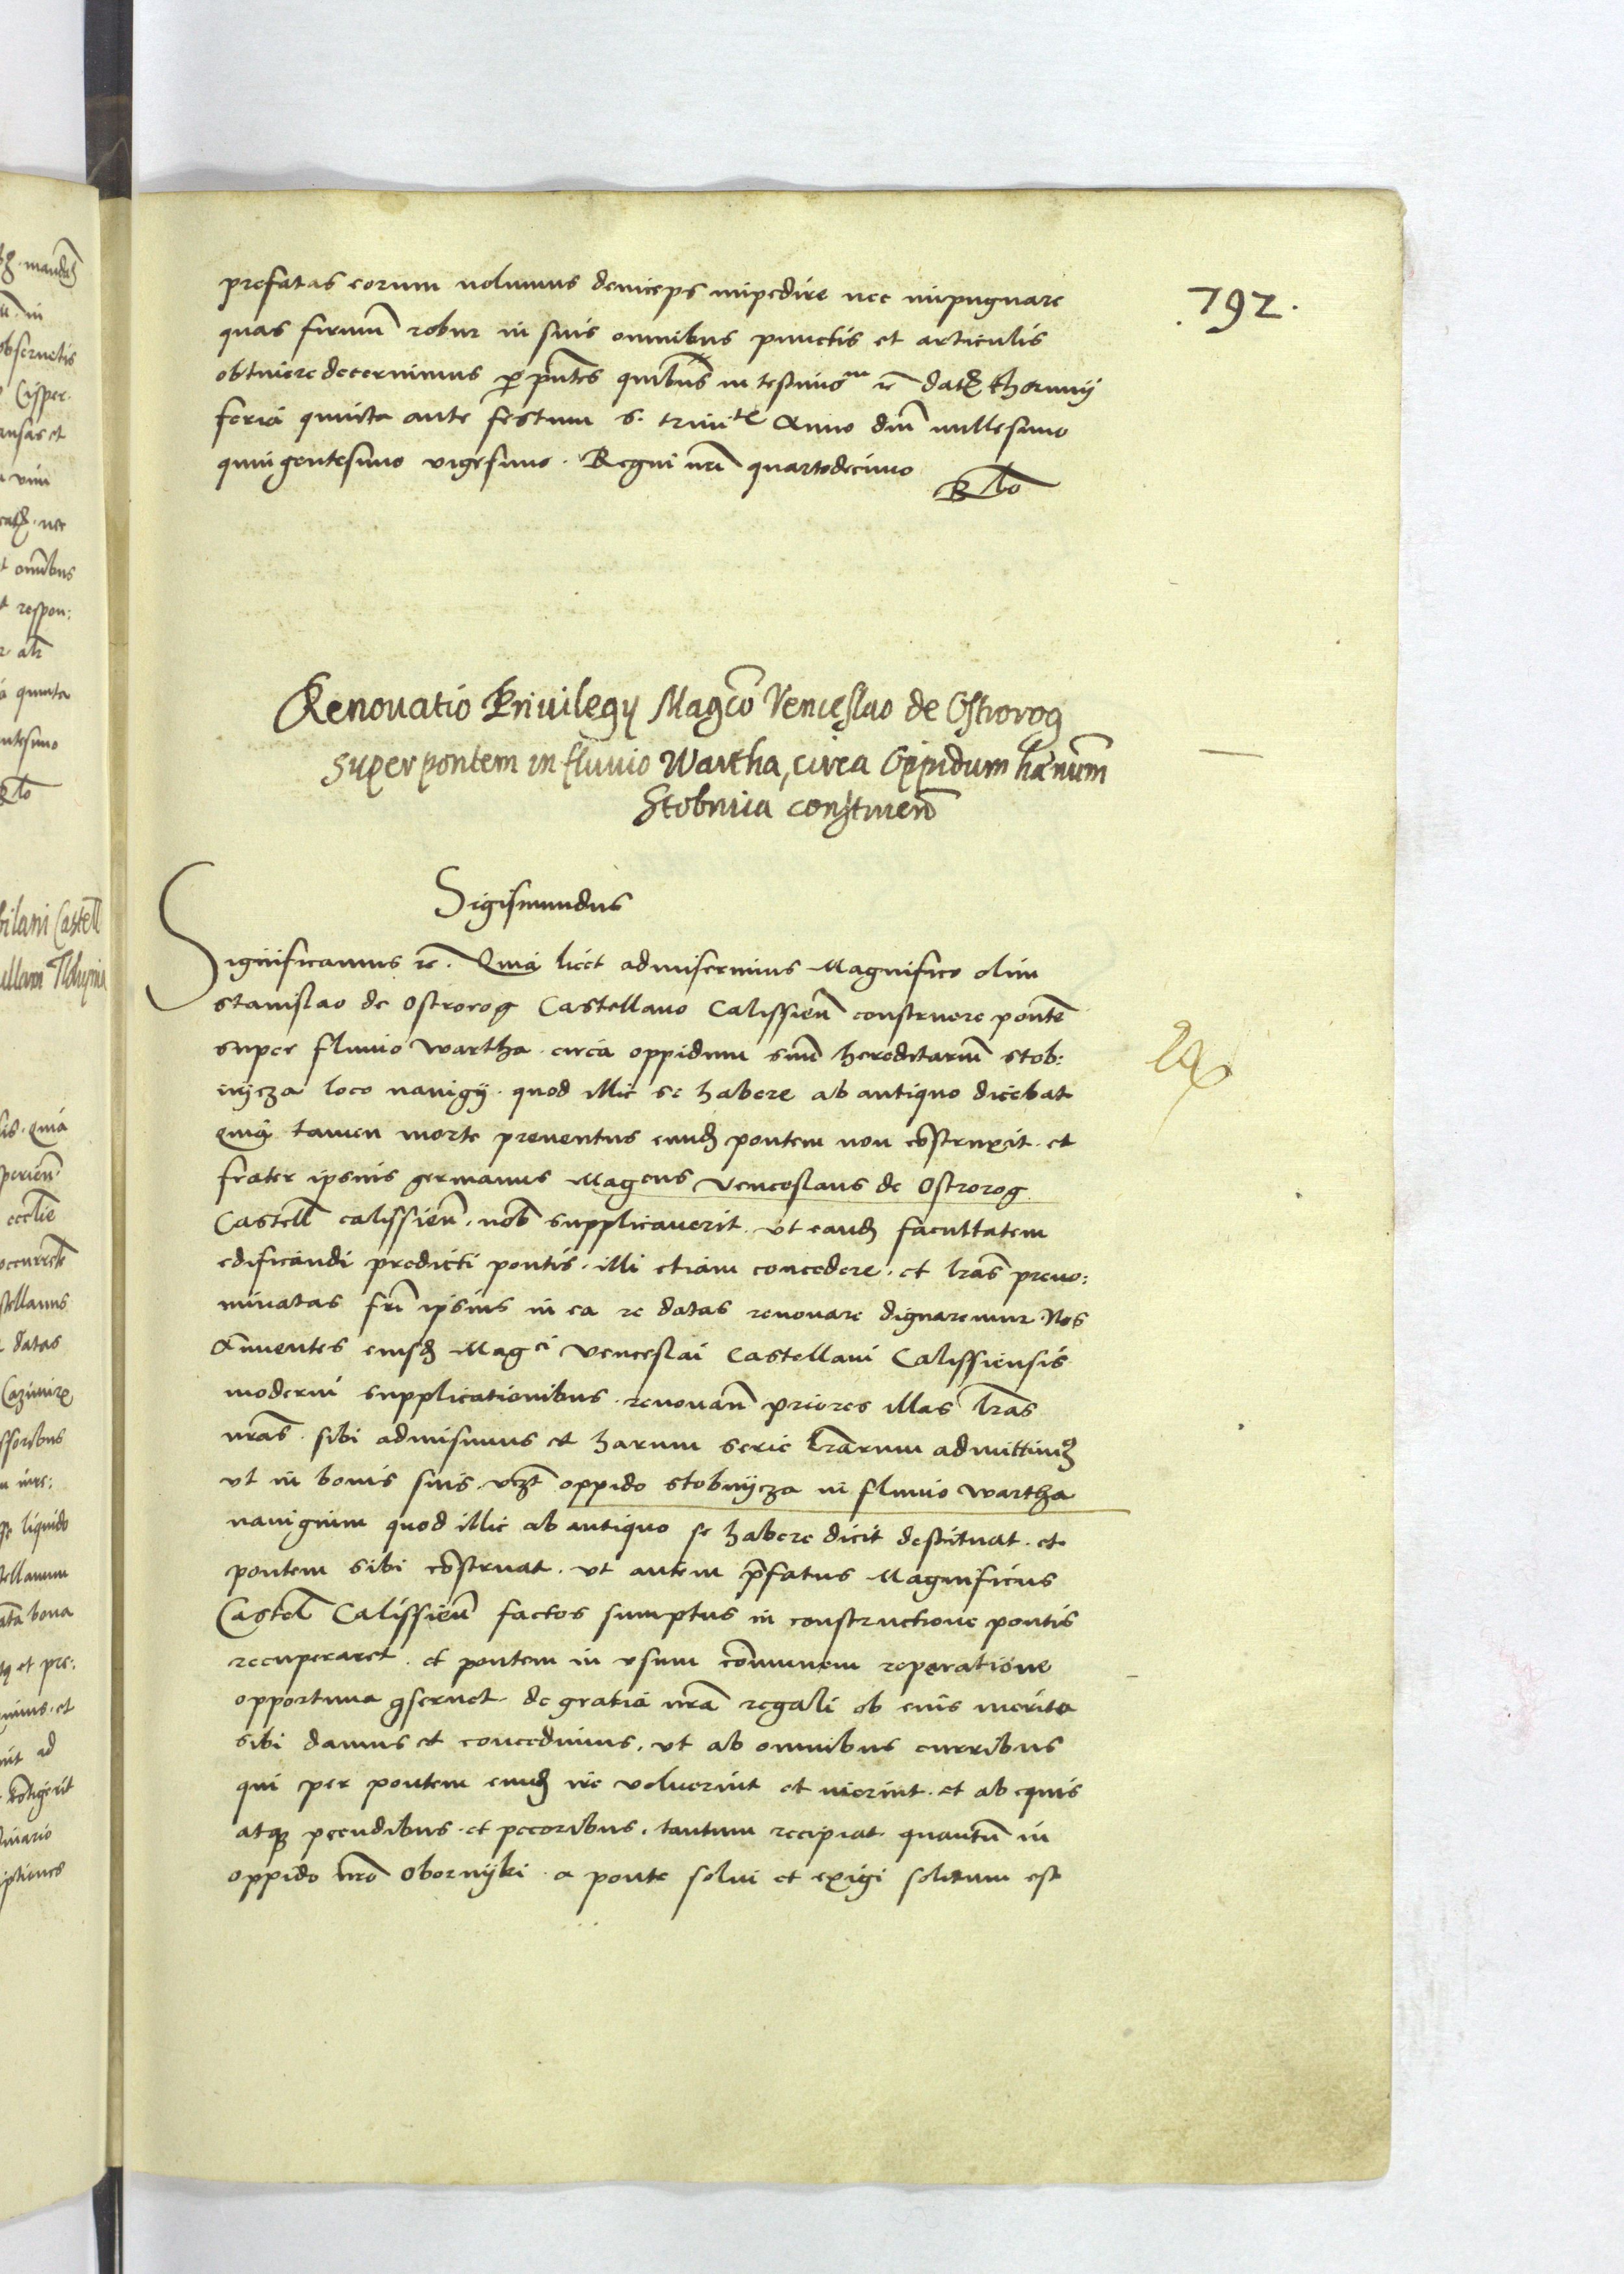 792.
prefatas eorum volumus deinceps impedire nec impugnare
quas firmū robur in suis omnibus punctis et articulis
obtinere decernimus p pn̄tes quibus in testimom rc̄ datȝ thorunij
feria quinta ante festum s. trinitte Anno dn̄i millesimo
quingentesimo vigesimo. Regni nr̄i quartodecimo
Renouatio Priuilegij Mag̃co Venceslao de Ostrorog
super pontem in fluuio Wartha, circa Oppidum hæ̃num
Stobnica construen̄
Sigismundus
Significamus rc̄. Quia licet admiserimus Magnifico olim
stanislao de Ostrorog Castellano Calissien̄ construere pontē
super fluuio wartha circa oppidum suū hereditariū stob:
nycza loco nauigij. quod illic se habere ab antiquo dicebat
quia tamen morte preuentus eundȝ pontem non cōstruxit. et
frater ipsius germanus Magcus Venceslaus de Ostrorog
Castell̄ calissien̄. nob̄ supplicauerit. ut eandȝ facultatem
edificandi predicti pontis. illi etiam concedere. et lr̄as preno:
minatas fr̄i ipsius in ea re datas renouare dignaremur. Nos
Annuentes eiusdȝ Magci Venceslai Castellani Calissiensis
moderni supplicationibus. renouan̄ priores illas lr̄as
nr̄as. sibi admisimus et harum serie lr̄arum admittimȝ
ut in bonis suis. vcȝt oppido stobnycza in fluuio wartha
nauigium quod illic ab antiquo se habere dicit destituat. et
pontem sibi cōstruat. ut autem p̄fatus Magnificus
Castel̄ Calissien̄ factos sumptus in constructione pontis
recuperaret. et pontem in usum cōmunem reparatione
opportuna 9seruet. de gratia nr̄a regali ob eius merita
sibi damus et concedimus. ut ab omnibus curribus
qui per pontem eundȝ ire voluerint et ierint. et ab equis
atqȝ pecudibus. et pecoribus. tantum recipiat quantū in
oppido nr̄o Obornyki a ponte solui et exigi solitum est